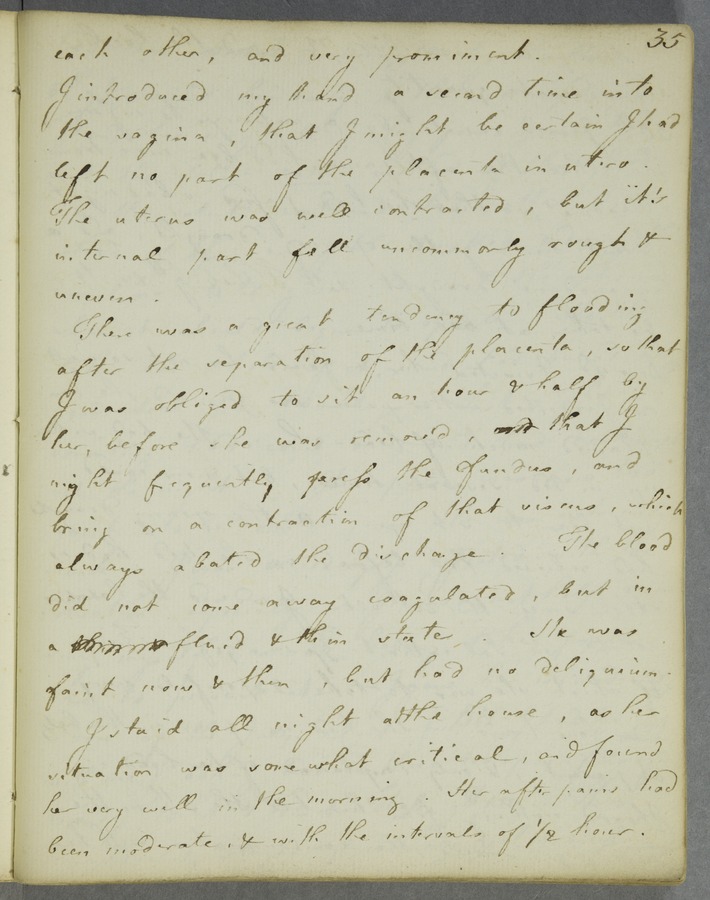 35
each other, and very prominent.
I introduced my hand a second time into
the vagina, that I might be certain I had
left no part of the placenta in utero.
The uterus was well contracted, but it's
internal part fell uncommonly rough &
uneven.
There was a great tendency to flooding
after the separation of the placenta, so that
I was obliged to sit an hour & half by
her, before she was removed, that I
might frequently press the fundus, and
bring on a contraction of that viscus, which
always abated the discharge. The blood
did not come away coagulated, but in
a fluid & thin state. She was
faint now & then, but had no deliquium.
I staid all night at the house, as her
situation was somewhat critical, and found
her very well in the morning. Her after pains had
been moderate, & with the intervals of 1/2 hour.